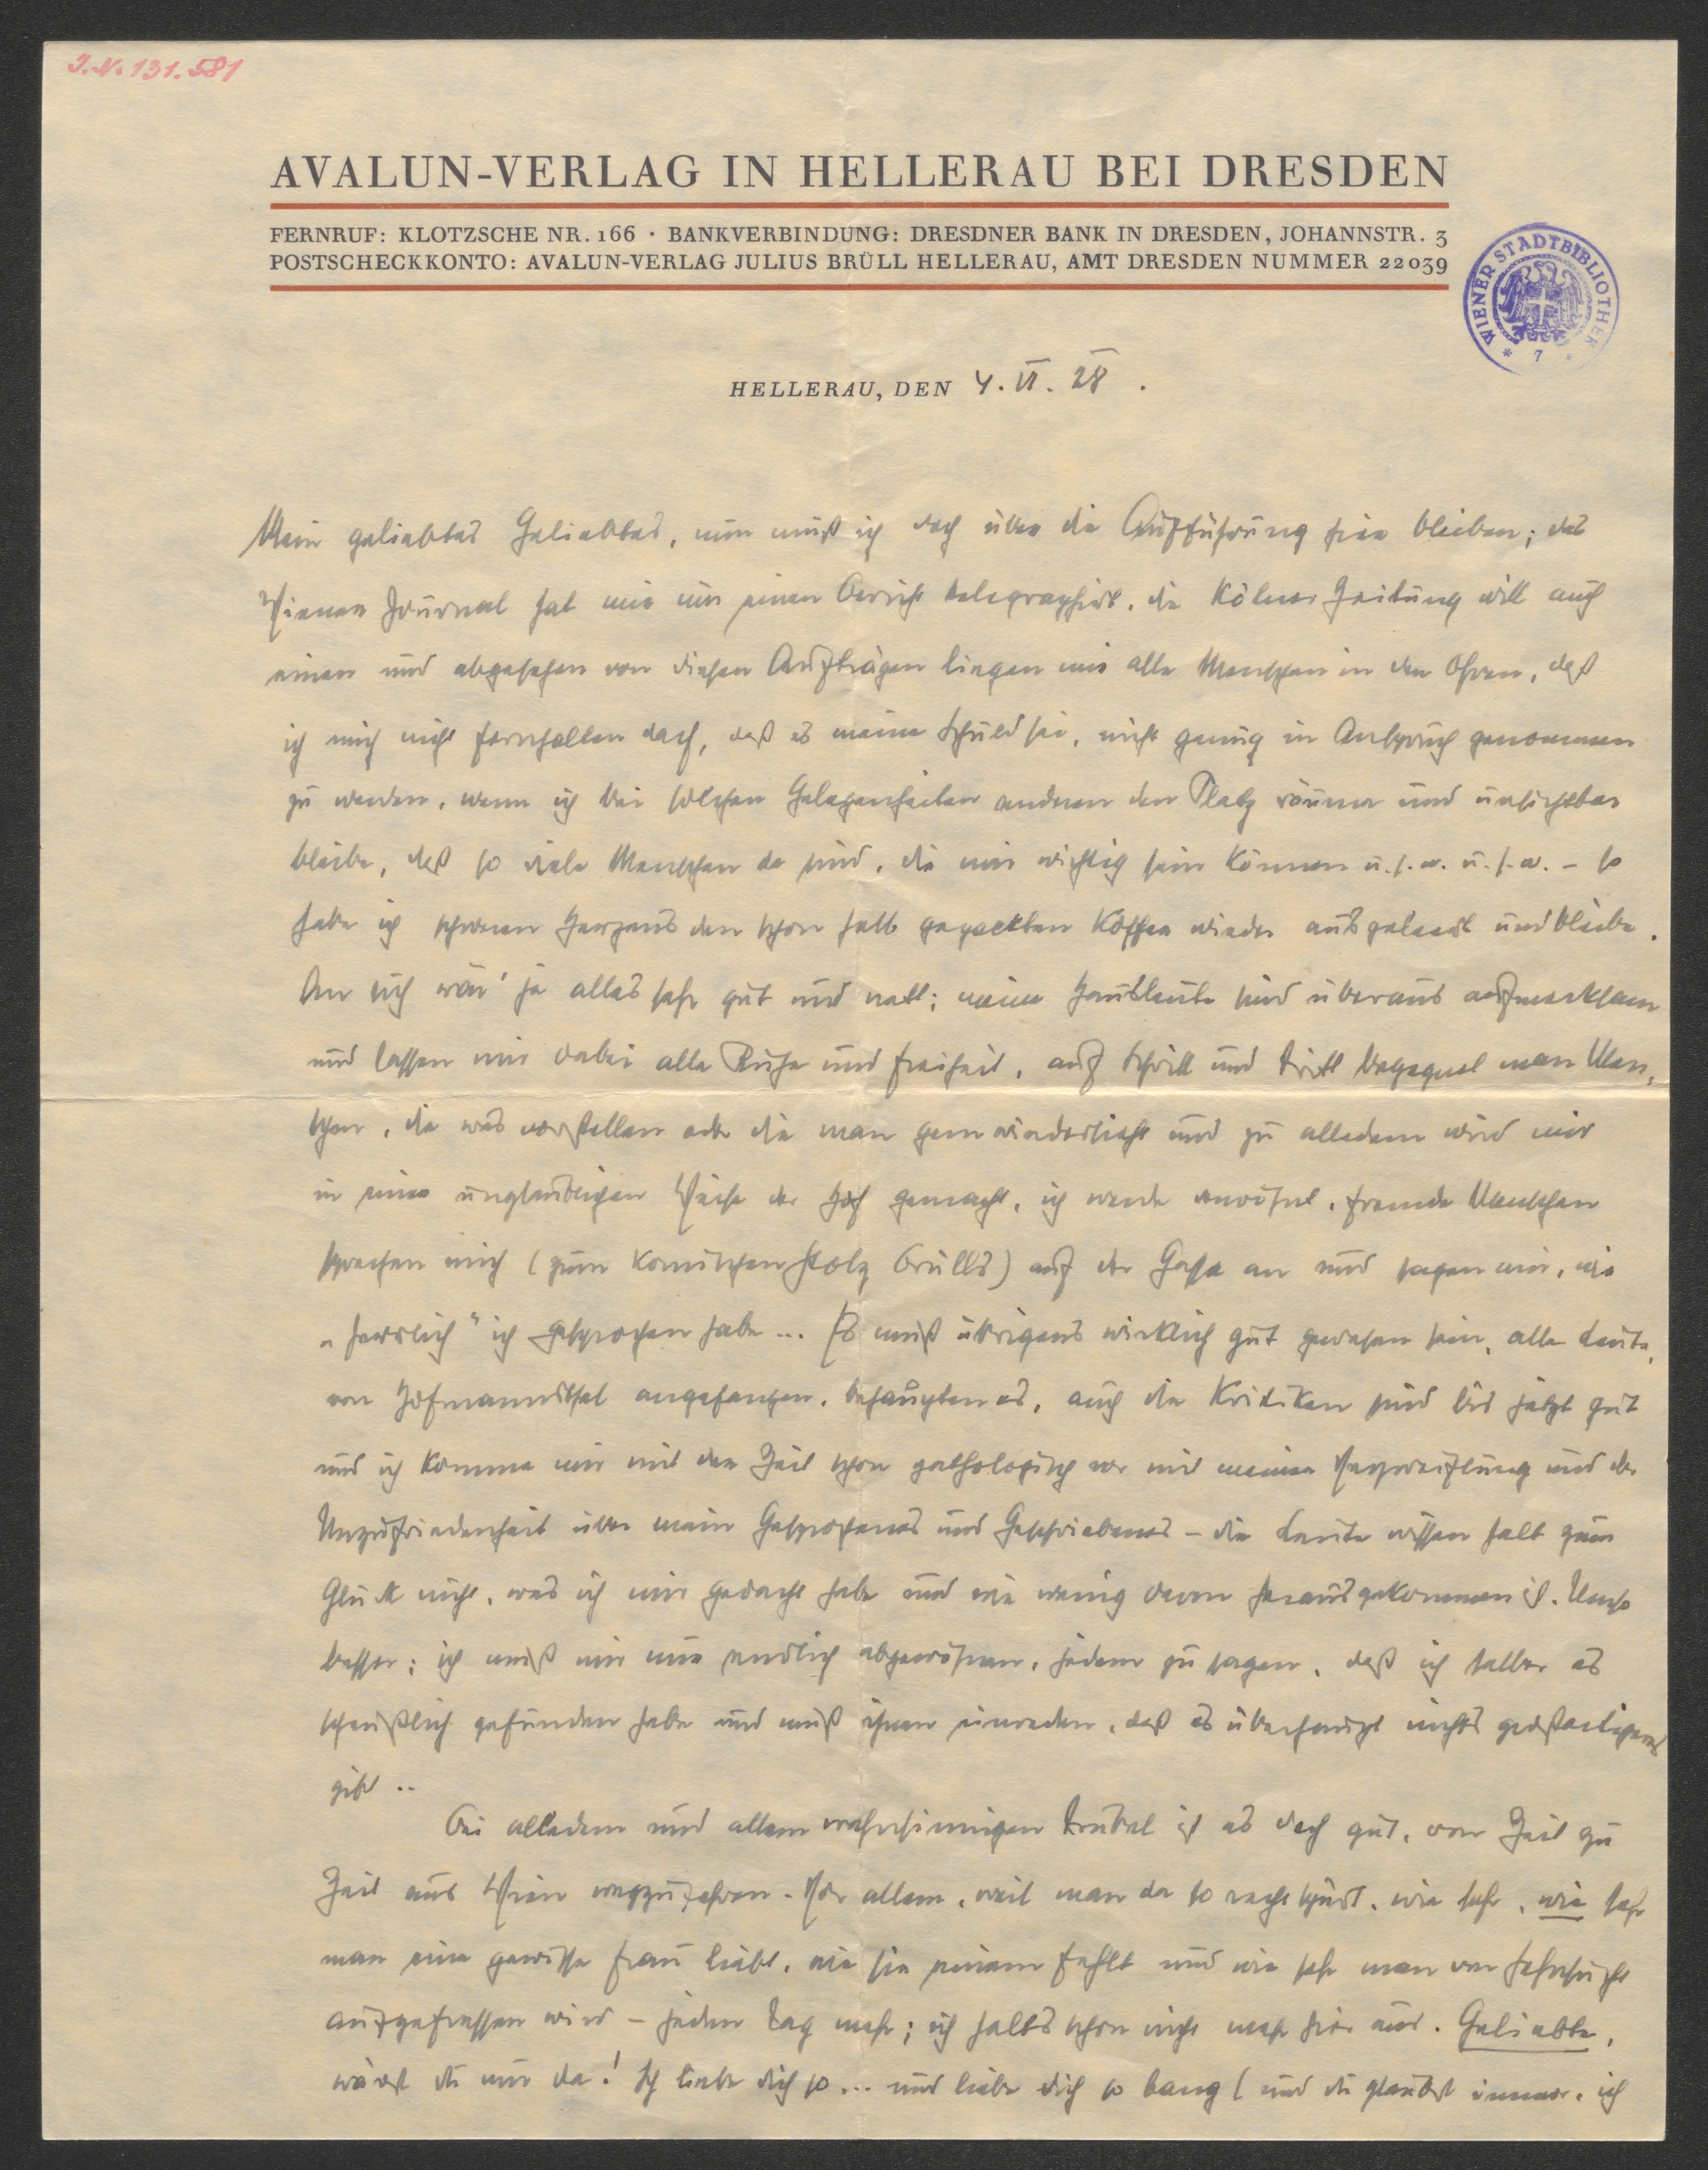 J.N. 131.581
AVALUN-VERLAG IN HELLERAU BEI DRESDEN
FERNRUF: KLOTZSCHE NR. 166 · BANKVERBINDUNG: DRESDNER BANK IN DRESDEN, JOHANNSTR. 3
POSTSCHECKKONTO: AVALUN-VERLAG JULIUS BRÜLL HELLERAU, AMT DRESDEN NUMMER 22039
WIENER STADTBIBLIOTHEK * 7 *
HELLERAU, DEN 4. VI. 28.
Mein geliebtes Geliebtes, nun muß ich doch über die Aufführung hier bleiben; das
Wiener Journal hat mir um einen Bericht telegraphiert, die Kölner Zeitung will auch
einen und abgesehen von diesen Aufträgen liegen mir alle Menschen in den Ohren, daß
ich mich nicht fernhalten darf, daß es meine Schuld sei, nicht genug in Anspruch genommen
zu werden, wenn ich bei solchen Gelegenheiten anderen den Platz räume und unsichtbar
bleibe, daß so viele Menschen da sind, die mir wichtig sein können u.s.w. u.s.w. – so
habe ich schweren Herzens den schon halb gepackten Koffer wieder ausgeleert und bleibe.
An sich wär' ja alles sehr gut und nett; meine Hausleute sind überaus aufmerksam
und lassen mir dabei alle Ruhe und Freiheit, auf Schritt und Tritt begegnet man Men-
schen, die was vorstellen oder die man gern wiedersieht und zu alledem wird mir
in einer unglaublichen Weise der Hof gemacht, ich werde verwöhnt, fremde Menschen
sprechen mich (zum komischen Stolz Brülls) auf der Gasse an und sagen mir, wie
„herrlich" ich gesprochen habe... Es muß übrigens wirklich gut gewesen sein, alle Leute,
von Hofmannsthal angefangen, behaupten es, auch die Kritiken sind bis jetzt gut
und ich komme mir mit der Zeit schon pathologisch vor mit meiner Verzweiflung und der
Unzufriedenheit über mein Gesprochenes und Geschriebenes – die Leute wissen halt zum
Glück nicht, was ich mir gedacht habe und wie wenig davon herausgekommen ist. Umso
besser; ich muß mir nur endlich abgewöhnen, jedem zu sagen, daß ich selber es
scheußlich gefunden habe und muß ihnen einreden, daß es überhaupt nichts großartigeres
gibt ..
Bei alledem und allem wahnsinnigen Trubel ist es doch gut, von Zeit zu
Zeit aus Wien wegzufahren. Vor allem, weil man da so recht spürt, wie sehr, wie sehr
man eine gewisse Frau liebt, wie sie einem fehlt und wie sehr man von Sehnsucht
aufgefressen wird – jeden Tag mehr; ich halts schon nicht mehr hier aus. Geliebte,
wärst du nur da! Ich liebe dich so... und liebe dich so bang (und du glaubst immer, ich